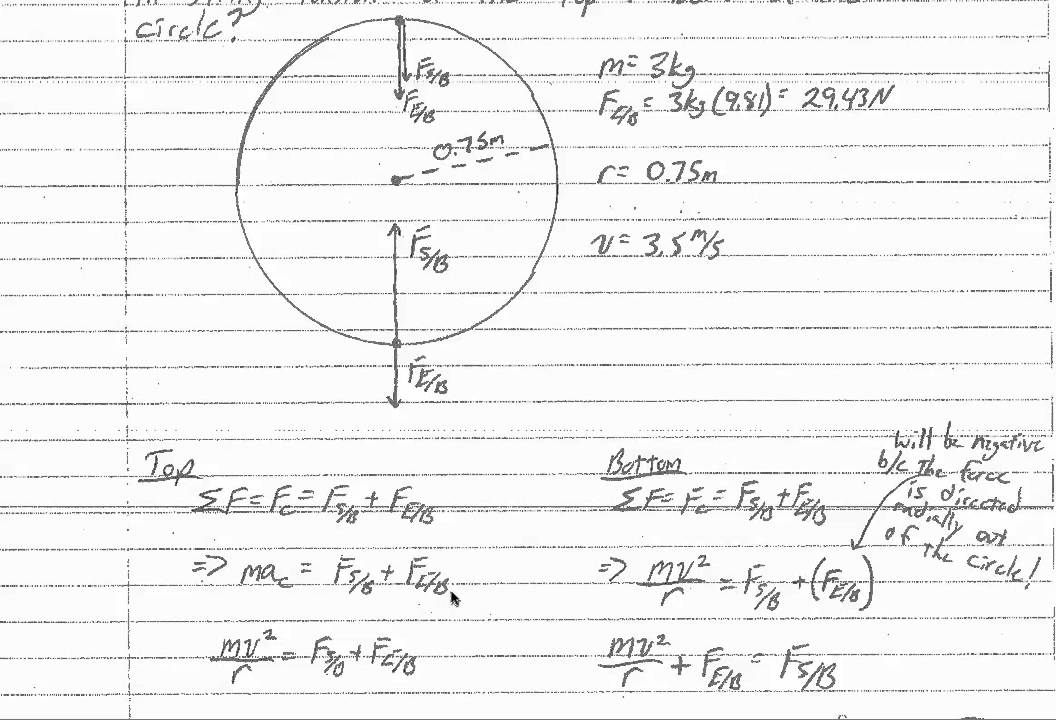 circle?
F_S/B
F_E/B
m= 3kg
F_E/B = 3kg(9.81)= 29.43N
0.75m
r= 0.75m
F_S/B
v= 3.5 m/s
F_E/B
Top
ΣF=F_c= F_S/B + F_E/B
=> ma_c = F_S/B + F_E/B
mv²/r = F_S/B + F_E/B
Bottom
ΣF= F_c= F_S/B + F_E/B
=> mv²/r = F_S/B + (F_E/B)
mv²/r + F_E/B = F_S/B
will be negative
b/c the force
is directed
radially out
of the circle!